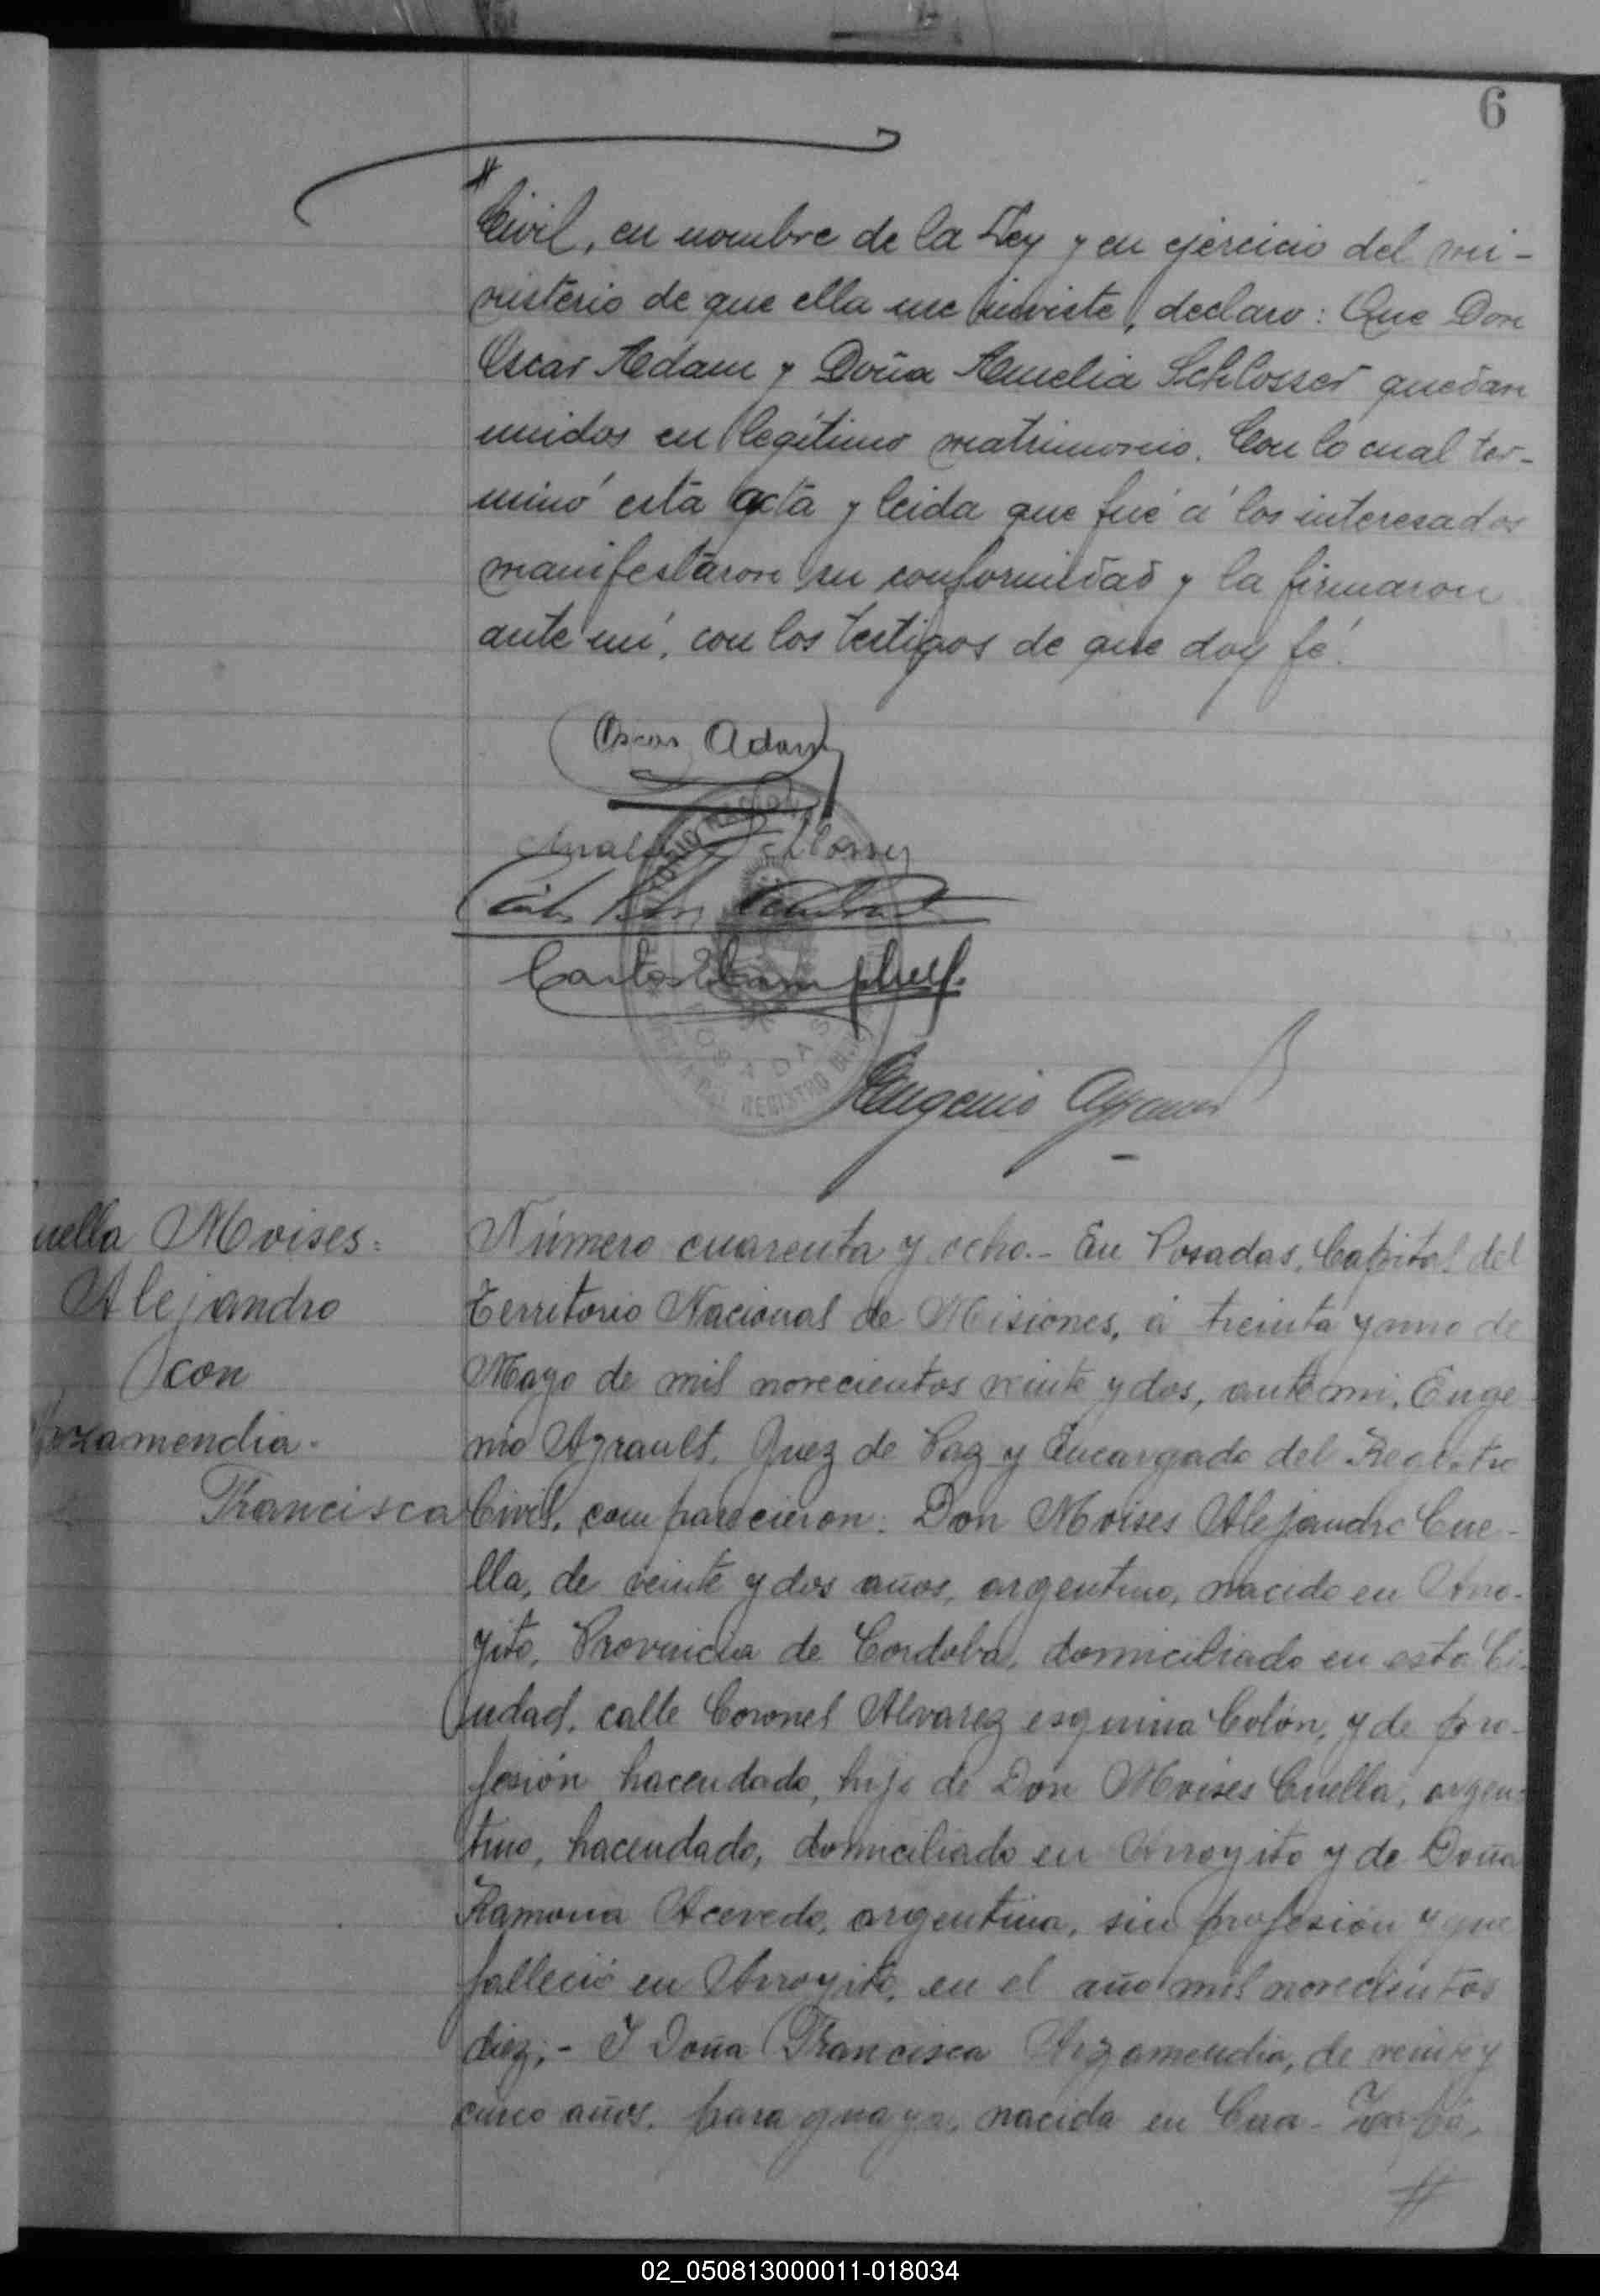 6
Civil, en nombre de la Ley y en ejercicio del mi-
nisterio de que ella me inviste, declaro: Que Don
Oscar Adam y Doña Amelia Schlosser quedan
unidos en legítimo matrimonio. Con lo cual ter-
minó esta acta y leida que fué á los interesados
manifestaron su conformidad y la firmaron
ante mí, con los testigos de que doy fé.
Oscar Adam
Carlos Campbell.
POSADAS
REGISTRO
Eugenio
uella Moises=
Alejandro
con
Arzamendia-
Francisca
Número cuarenta y ocho.- En Posadas, Capital del
Territorio Nacional de Misiones, á treinta y uno de
Mayo de mil novecientos veinte y dos, ante mi, Euge-
nio Ayrault, Juez de Paz y Encargado del Registro
Civil, comparecieron: Don Moises Alejandro Cue-
lla, de veinte y dos años, argentino, nacido en Arro-
yito, Provincia de Cordoba, domiciliado en esta Ci-
udad, calle Coronel Alvarez esquina Colón, y de pro-
fesión hacendado, hijo de Don Moises Cuella, argen-
tino, hacendado, domiciliado en Arroyito y de Doña
Ramona Acevedo, argentina, sin profesión y que
falleció en Arroyito, en el año mil novecientos
diez;- Y Doña Francisca Arzamendia, de veinte y
cinco años, paraguaya, nacida en
02_050813000011-018034